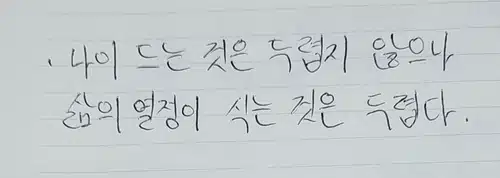 . 나이 드는 것은 두렵지 않으나
삶의 열정이 식는 것은 두렵다.